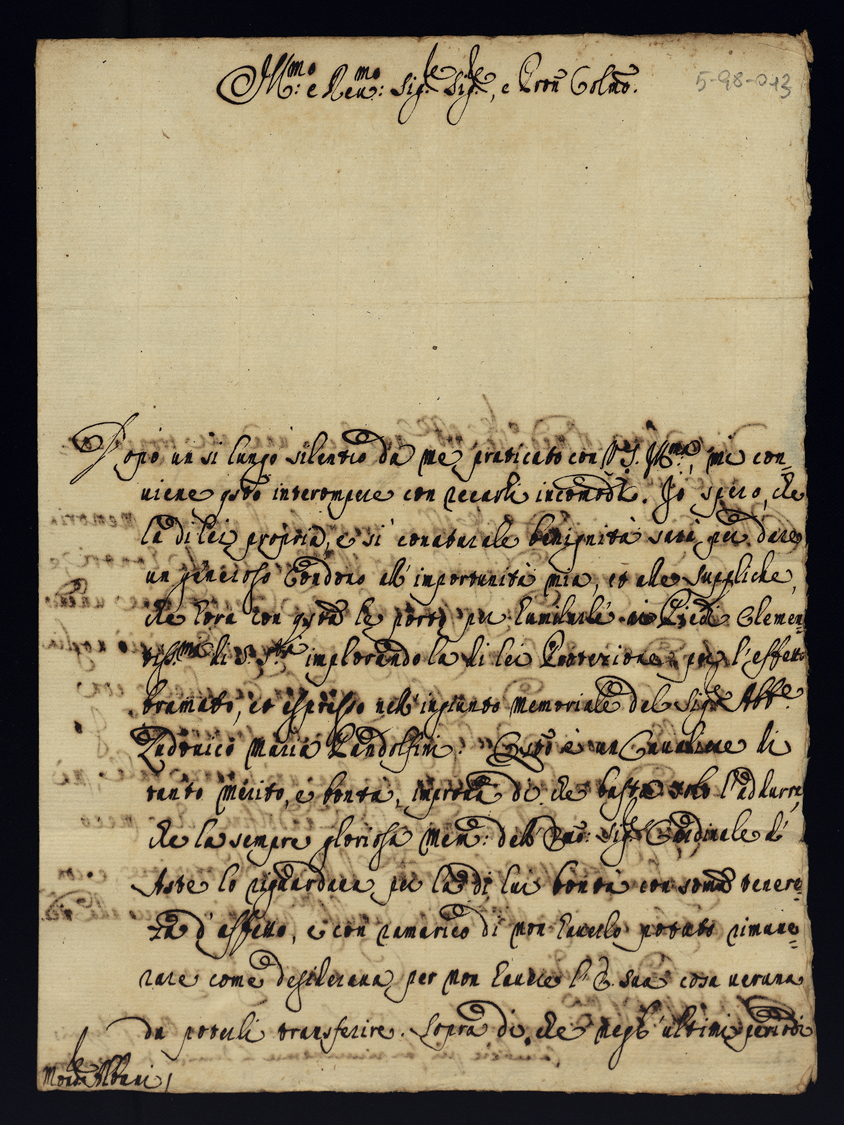 Ill.mo e Rev.mo Sig.re Sig.re, e Pron Colmo.
5-98-013
Dopo un si lungo silentio da me praticato con V. S. Ill.ma, mi con=
uiene qsto interompere con recarli incomodi. Io spero, che
la di lei propria, e si conaturale benignità sarà per dare
un generoso Condono all' importunità mia, et alle suppliche,
che hora con qsta le porto per humiliarle ai Piedi Clemen=
tiss.mi di S. S.tà implorando la di lei Protezione per l'effetto
bramato, et espresso nell' ingiunto memoriale del Sig.r Abb.e
Ludouico Maria Pandolfini. Qsto è un Caualiere di
tanto merito, e bontà, in proua di che basta solo l'addurre,
che la sempre gloriosa mem: dell' Emo: Sig.r Cardinale d'
Aste lo riguardaua per la di lui bontà con soma tenere=
za d'affetto, e con ramarico di non hauerlo potuto rimune=
rare come desideraua per non hauere l'E. sua cosa ueruna
da poterli transferire. Sopra di che negl' ultimi periodi
Mons.re Albani